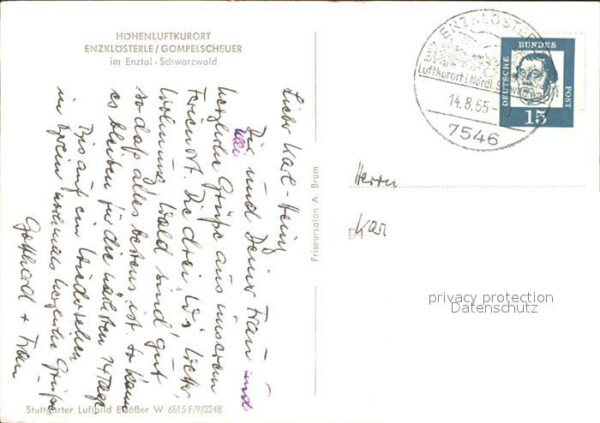 HÖHENLUFTKURORT
ENZKLÖSTERLE / GOMPELSCHEUER
im Enztal - Schwarzwald
Lieber Karl-Heinz
Dir und Deiner Frau und
alle
herzliche Grüße aus unserem
Ferienort. Die drei W's
Wohnung, Wald sind gut
so daß alles bestens ist. So kann
es bleiben für die nächsten 14 Tage
Bis auf ein Wiedersehen
in nochmals herzliche Grüße
Gotthard + Frau
Stuttgarter Luftbild Elsäßer W 6815 F/9/3248
Friseursalon A. Brum
ENZKLÖSTERLE
Luftkurort i. Nördl.
14.8.65
7546
DEUTSCHE BUNDESPOST
15
Herrn
Kar
privacy protection
Datenschutz